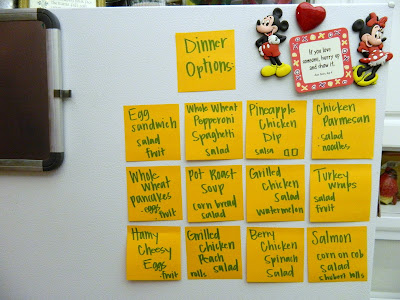 Dinner
Options:
If you love
someone, hurry up
and show it.
Egg
sandwich
salad
fruit
Whole Wheat
Pepperoni
Spaghetti
salad
Pineapple
Chicken
Dip
salsa
Chicken
Parmesan
-salad
-noodles
Whole
Wheat
Pancakes
-eggs
-fruit
Pot Roast
Soup
corn bread
salad
Grilled
Chicken
Salad
watermelon
Turkey
Wraps
salad
fruit
Hamy
Cheesy
Eggs
-fruit
Grilled
Chicken
Peach
rolls Salad
Berry
Chicken
Spinach
Salad
Salmon
corn on cob
salad